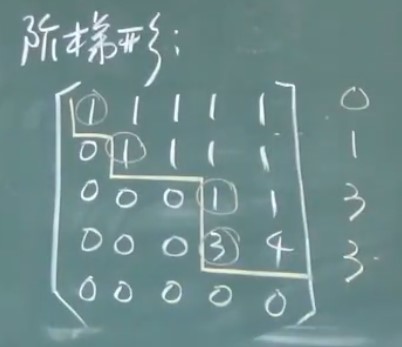 阶梯形:
1 1 1 1 1 0
0 1 1 1 1 1
0 0 0 1 1 3
0 0 0 3 4 3
0 0 0 0 0